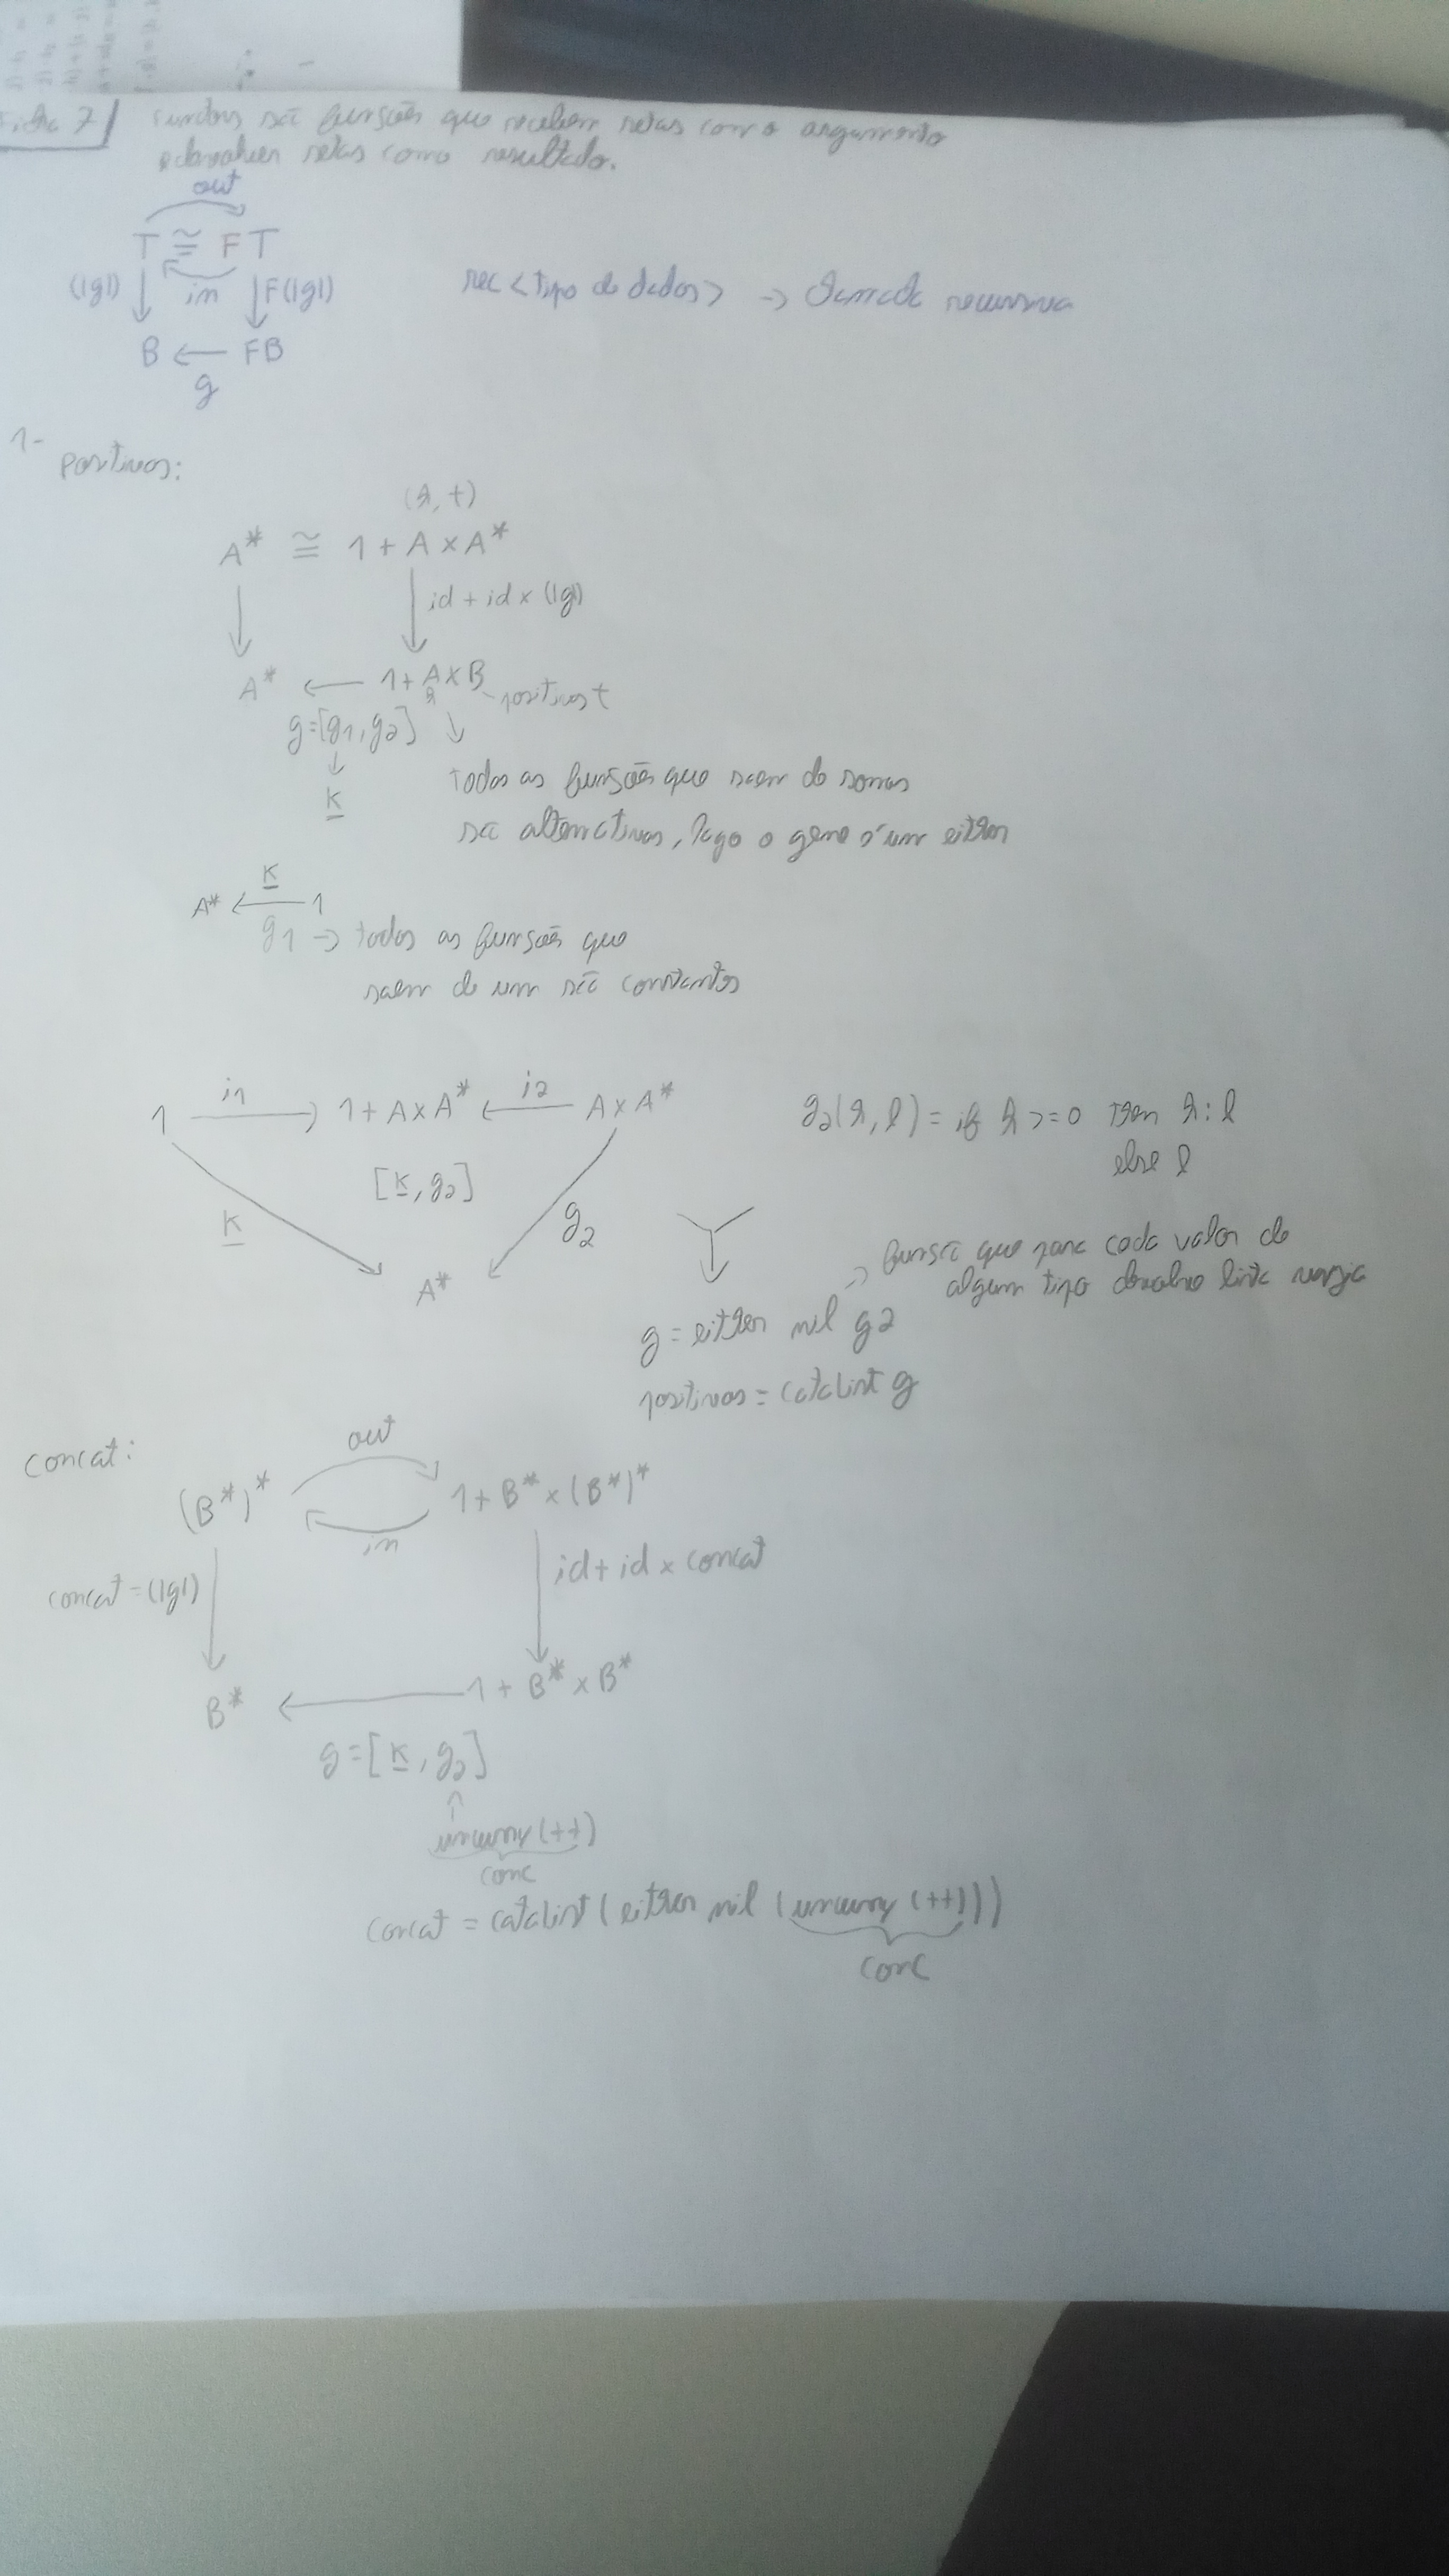 Ficha 7 funtores são funções que recebem setas como argumento
e devolvem setas como resultado.
out
T ≅ F T
(|g|) in F(|g|)
rec<tipo de dados> → chamada recursiva
B ← FB
g
1-
positivos:
(h, t)
A* ≅ 1 + A × A*
id + id × (|g|)
A* ← 1 + A × B
h positivos t
g = [g1, g2]
k
todas as funções que saem de somas
são alternativas, logo o gene é um either
k
A* ← 1
g1 → todas as funções que
saem de um são constantes
1 → i1 → 1 + A × A* ← i2 ← A × A*
[k, g2]
k g2
A*
g2(h, l) = if h >= 0 then h : l
else l
→ função que para cada valor de
algum tipo devolve lista vazia
g = either nil g2
positivos = cataList g
concat:
out
(B*)* 1 + B* × (B*)*
in
concat = (|g|) id + id × concat
B* ← 1 + B* × B*
g = [k, g2]
uncurry (++)
conc
concat = cataList (either nil (uncurry (++)))
conc